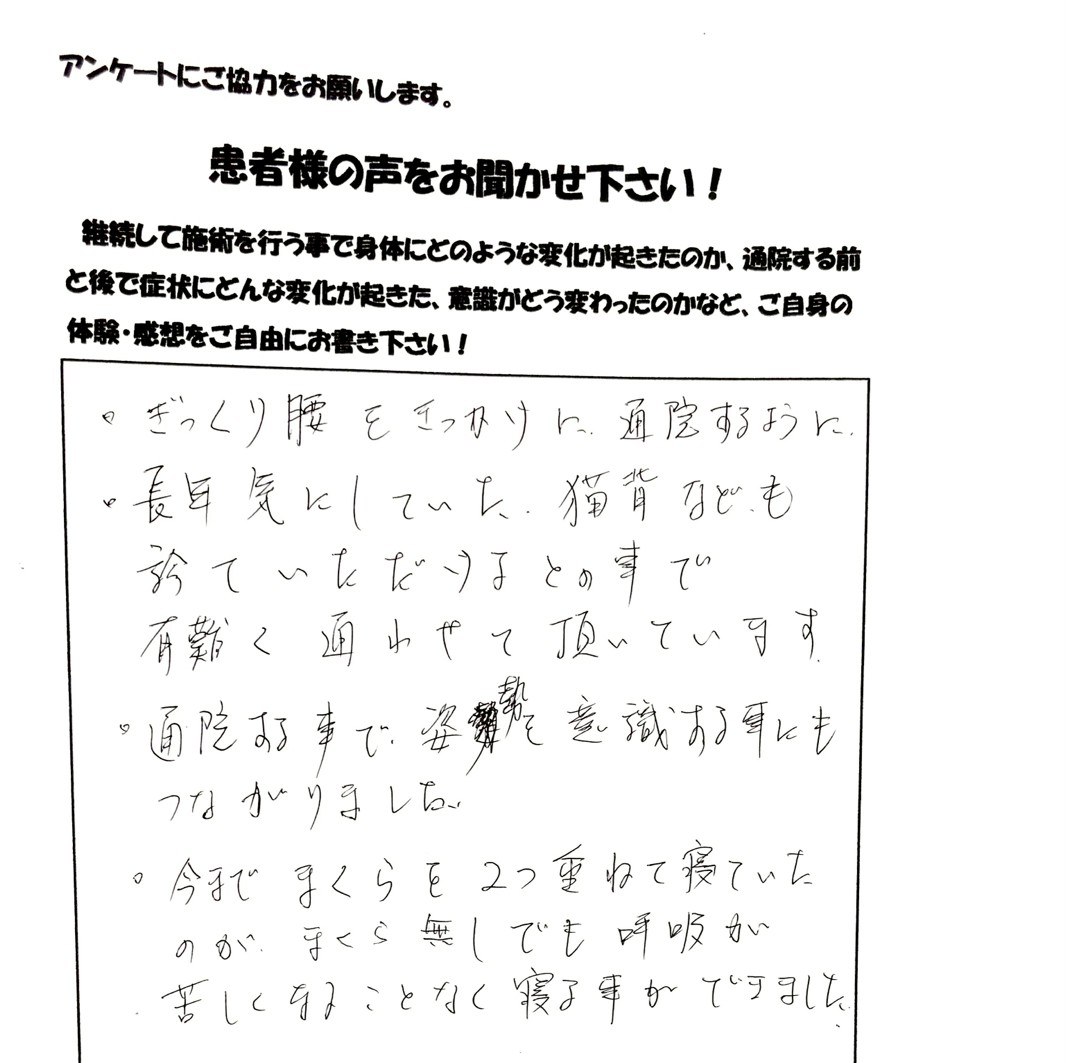 アンケートにご協力をお願いします。
患者様の声をお聞かせ下さい！
継続して施術を行う事で身体にどのような変化が起きたのか、通院する前
と後で症状にどんな変化が起きた、意識がどう変わったのかなど、ご自身の
体験・感想をご自由にお書き下さい！
。ぎっくり腰をきっかけに、通院するように.
。長年気にしていた、猫背なども
診ていただけるとの事で
有難く通わせて頂いています.
。通院する事で、姿勢を意識する事にも
つながりました。
。今までまくらを2つ重ねて寝ていた
のが、まくら無しでも呼吸が
苦しくなることなく寝る事ができました.